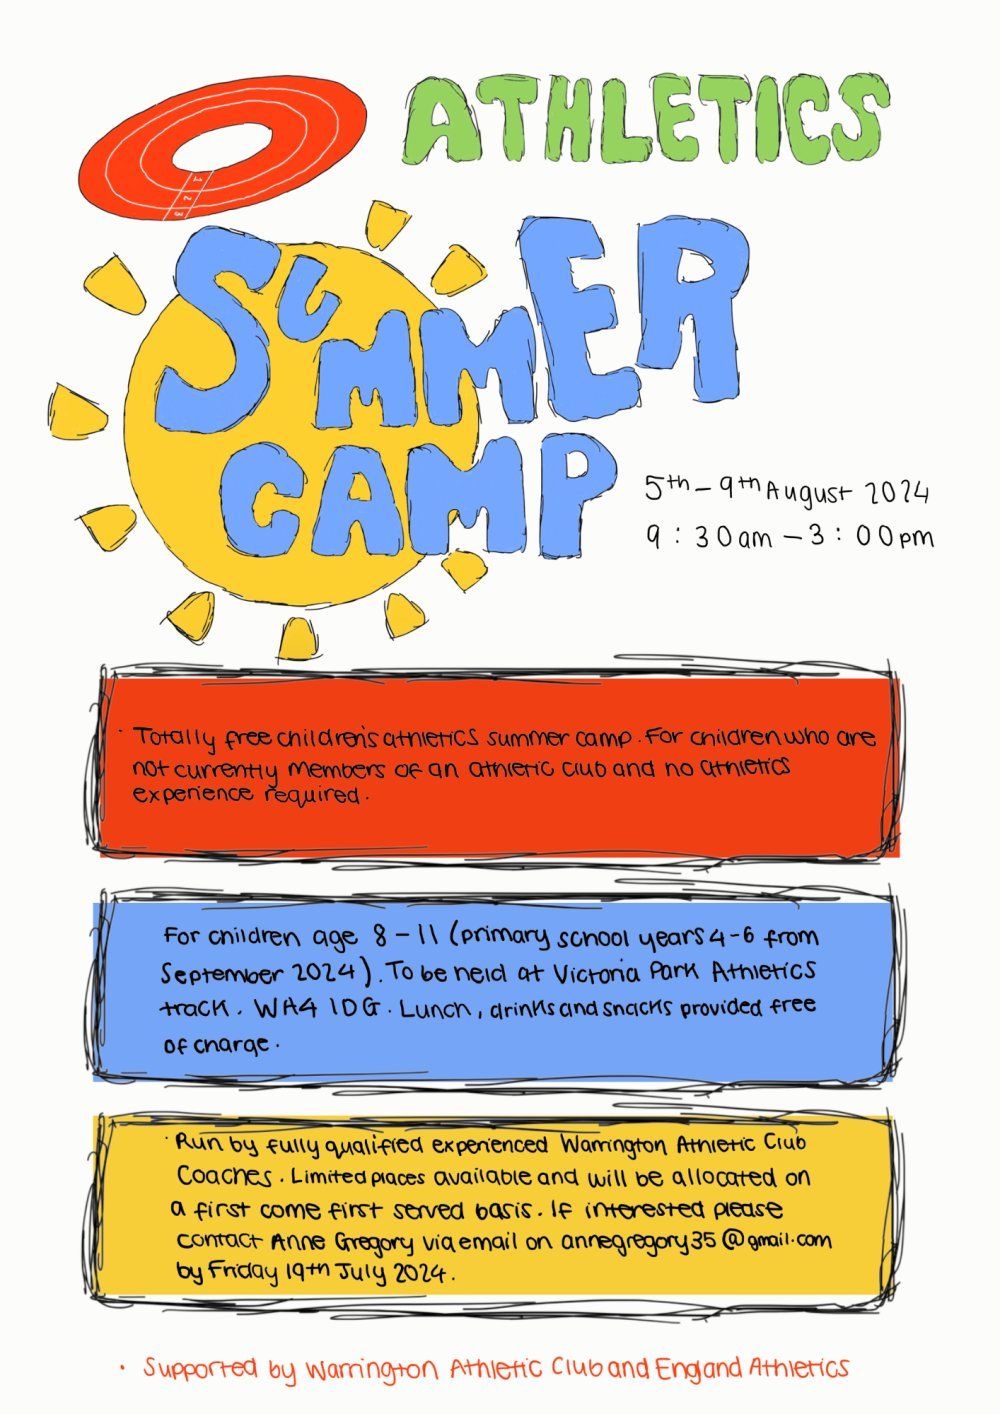 1
2
3
ATHLETICS
SUMMER
CAMP
5th - 9th August 2024
9:30am - 3:00pm
· Totally free children's athletics summer camp. For children who are
not currently members of an athletic club and no athletics
experience required.
For children age 8 - 11 (primary school years 4-6 from
September 2024). To be held at Victoria Park Athletics
track. WA4 1DG. Lunch, drinks and snacks provided free
of charge.
· Run by fully qualified experienced Warrington Athletic Club
Coaches. Limited places available and will be allocated on
a first come first served basis. If interested please
contact Anne Gregory via email on annegregory35@gmail.com
by Friday 19th July 2024.
· Supported by Warrington Athletic Club and England Athletics